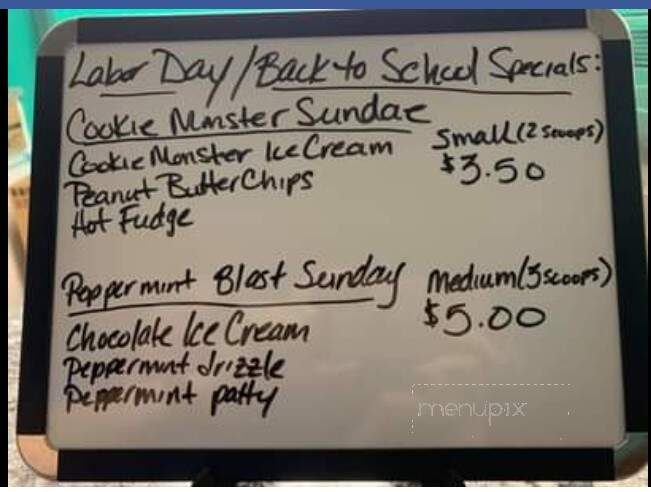 Labor Day/Back to School Specials:
Cookie Monster Sundae
Cookie Monster Ice Cream Small (2 scoops)
Peanut Butter Chips $3.50
Hot Fudge
Peppermint Blast Sunday medium (3 scoops)
Chocolate Ice Cream $5.00
Peppermint drizzle
Peppermint patty
menupix